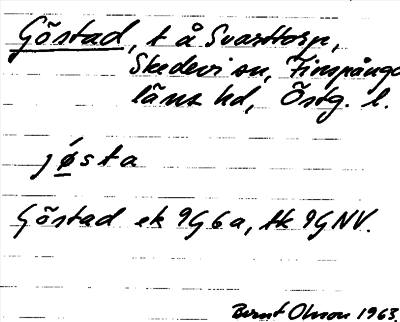 Göstad, t å Svarttorp,
Skedevi sn, Finspånga
läns hd, Östg. l.
jǿsta
Göstad ek 9G6a, tk 9GNV.
Bernt Olsson 1963.